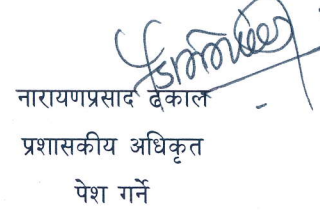 नारायणप्रसाद ढकाल
प्रशासकीय अधिकृत
पेश गर्ने